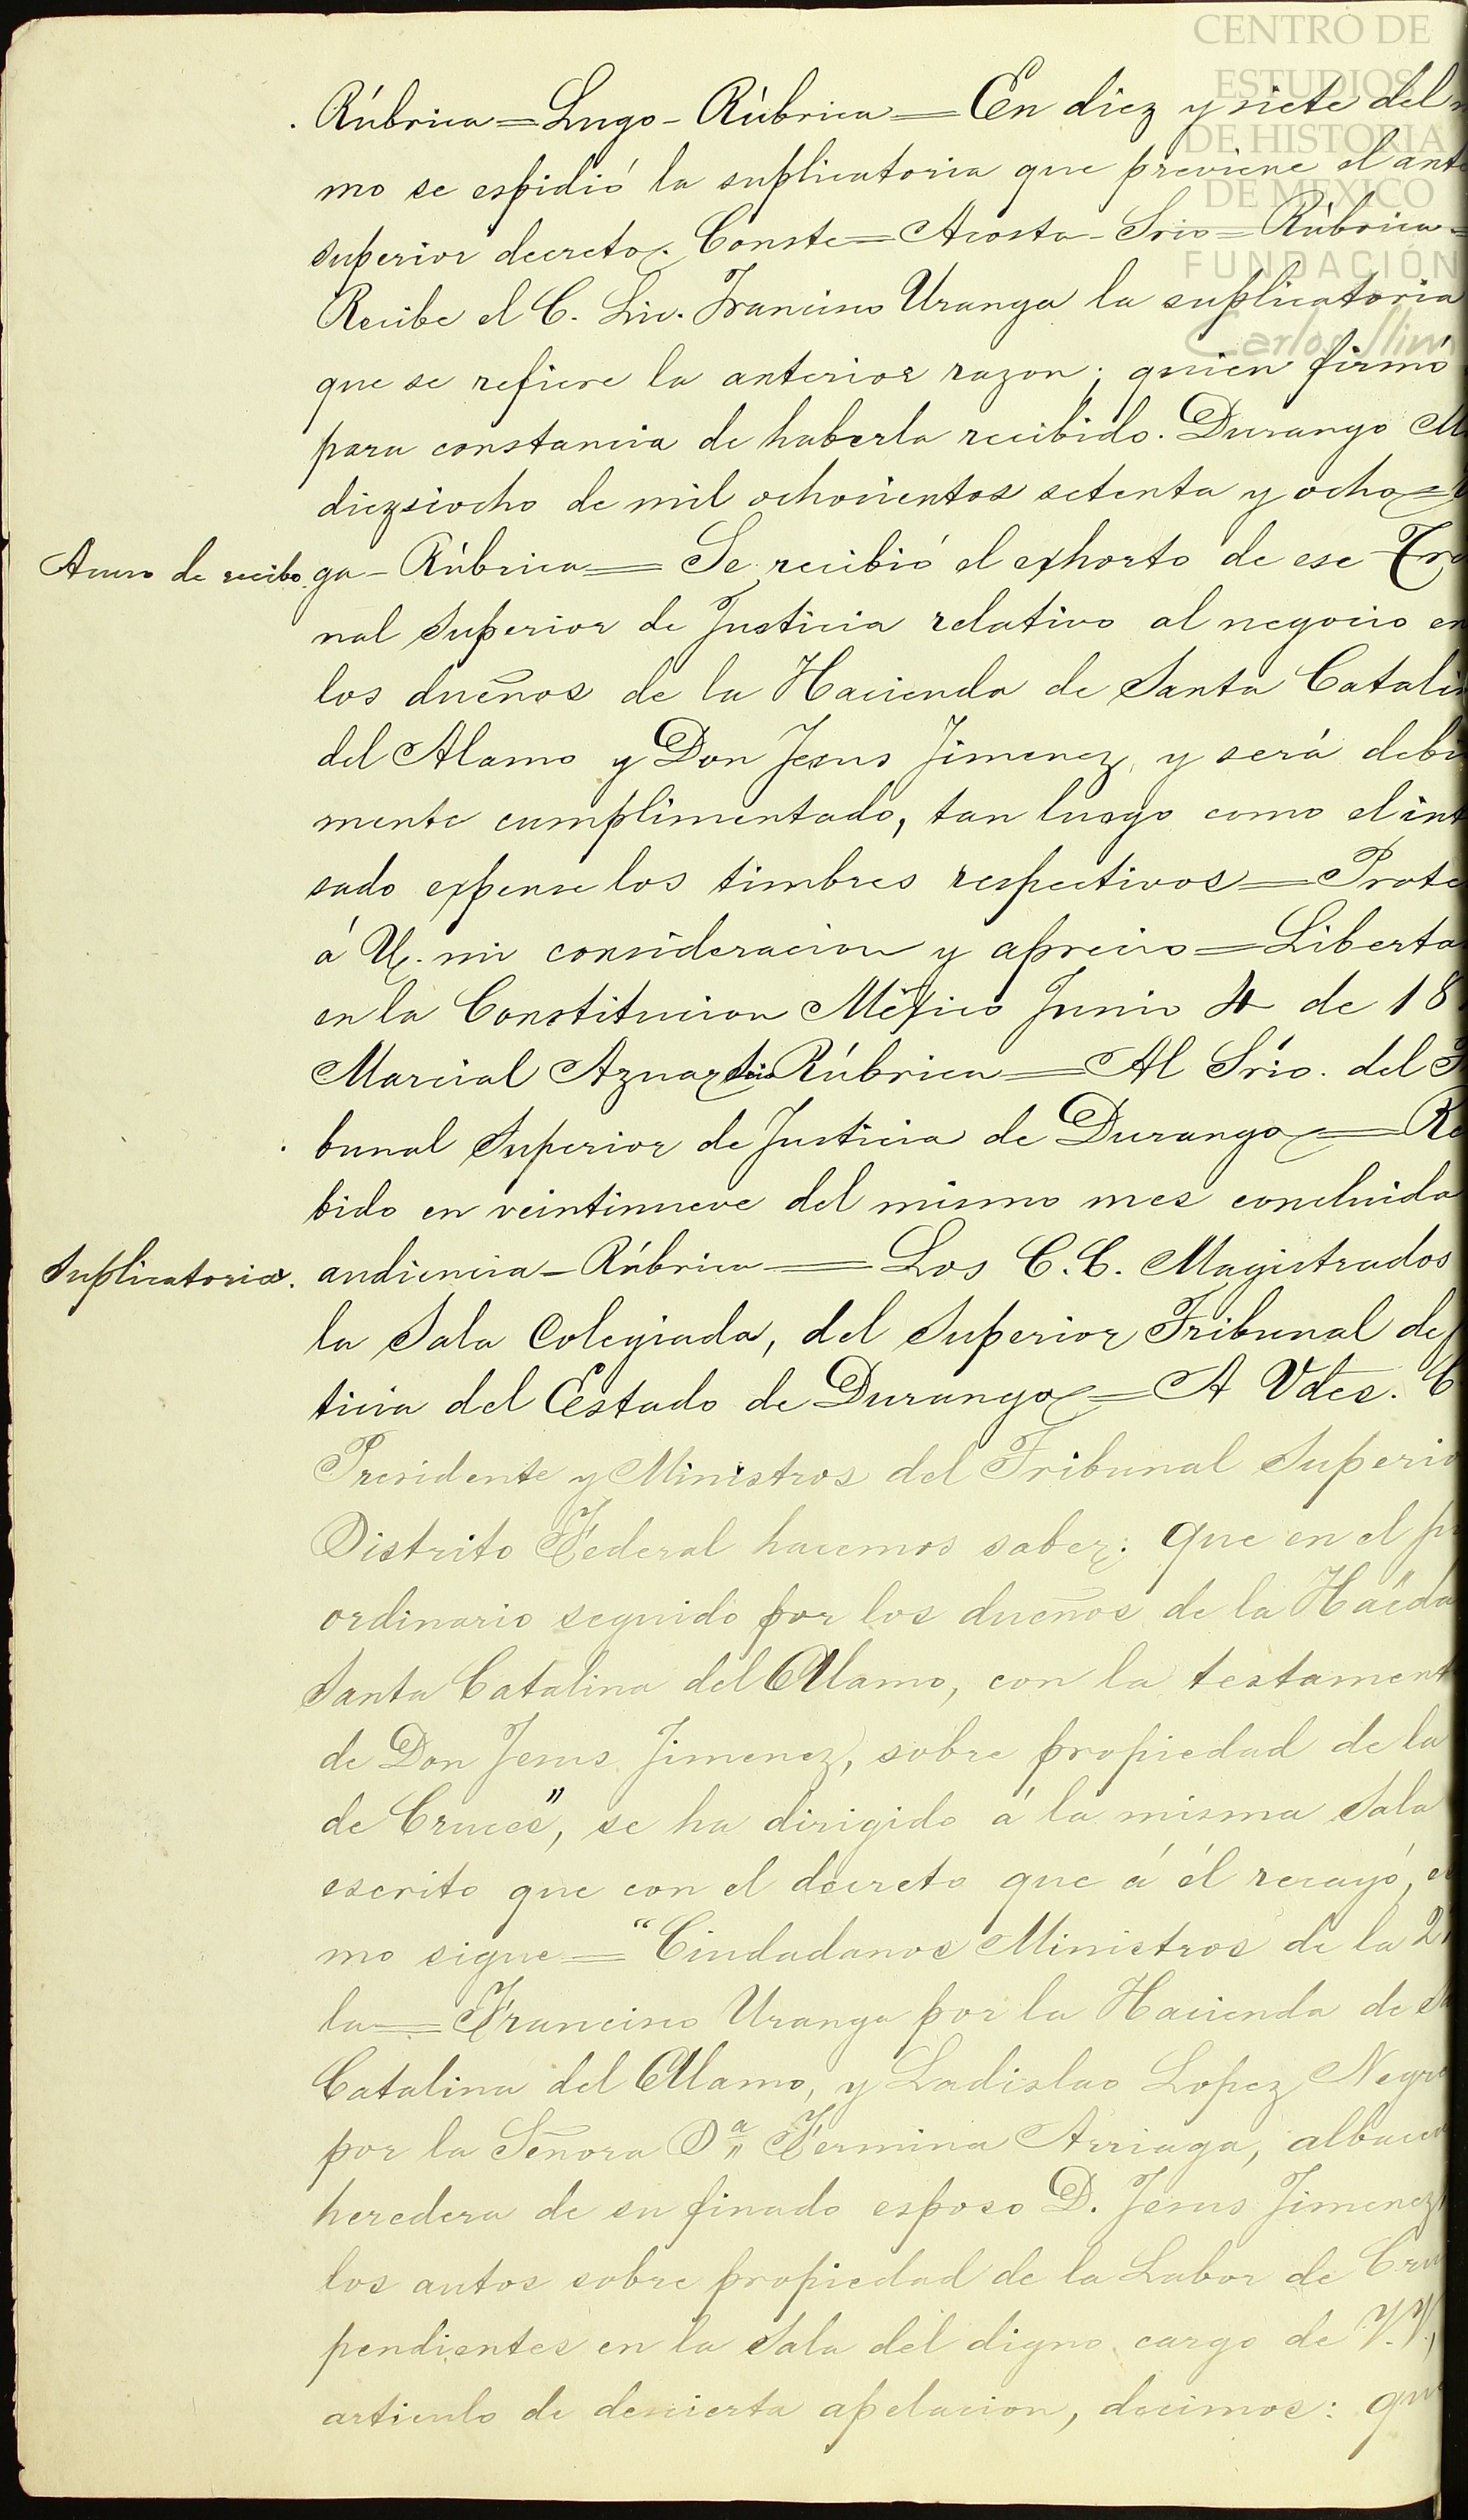 CENTRO DE
ESTUDIOS
DE HISTORIA
DE MEXICO
FUNDACIÓN
Carlos Slim
Rúbrica=Lugo-Rúbrica=En diez y siete del
mo se espidió la suplicatoria que previene el ant
superior decreto. Conste=Acosta-Srio=Rúbrica=
Recibe el C. Lic. Francisco Uranga la suplicatoria
que se refiere la anterior razon; quien firmó
para constancia de haberla recibido. Durango M
diezsiocho de mil ochocientos setenta y ocho=
Acuso de recibo. ga-Rúbrica=Se recibió el exhorto de ese Tr
nal Superior de Justicia relativo al negocio en
los dueños de la Hacienda de Santa Catali
del Alamo y Don Jesus Jimenez, y será debi
mente cumplimentado, tan luego como el int
sado expense los timbres respectivos=Prote
á U. mi consideracion y aprecio=Liberta
en la Constitucion México Junio 4 de 18
Marcial Aznar Srio Rúbrica=Al Srio. del T
bunal Superior de Justicia de Durango=Re
bido en veintinueve del mismo mes concluida
Suplicatoria. audiencia-Rúbrica=Los C.C. Magistrados
la Sala Colegiada, del Superior Tribunal de
ticia del Estado de Durango=A Vdes. C
Presidente y Ministros del Tribunal Superio
Distrito Federal hacemos saber: que en el
ordinario seguido por los dueños de la Hacda
Santa Catalina del Alamo, con la testament
de Don Jesus Jimenez, sobre propiedad de la
de Cruces", se ha dirigido á la misma Sala
escrito que con el decreto que á él recayó,
mo sigue="Ciudadanos Ministros de la 2
la=Francisco Uranga por la Hacienda de
Catalina del Alamo, y Ladislao Lopez Negre
por la Señora Dª Fermina Arriaga, albacea
heredera de su finado esposo D. Jesus Jimenez,
los autos sobre propiedad de la Labor de Cru
pendientes en la Sala del digno cargo de V.V,
articulo de desierta apelacion, decimos: que